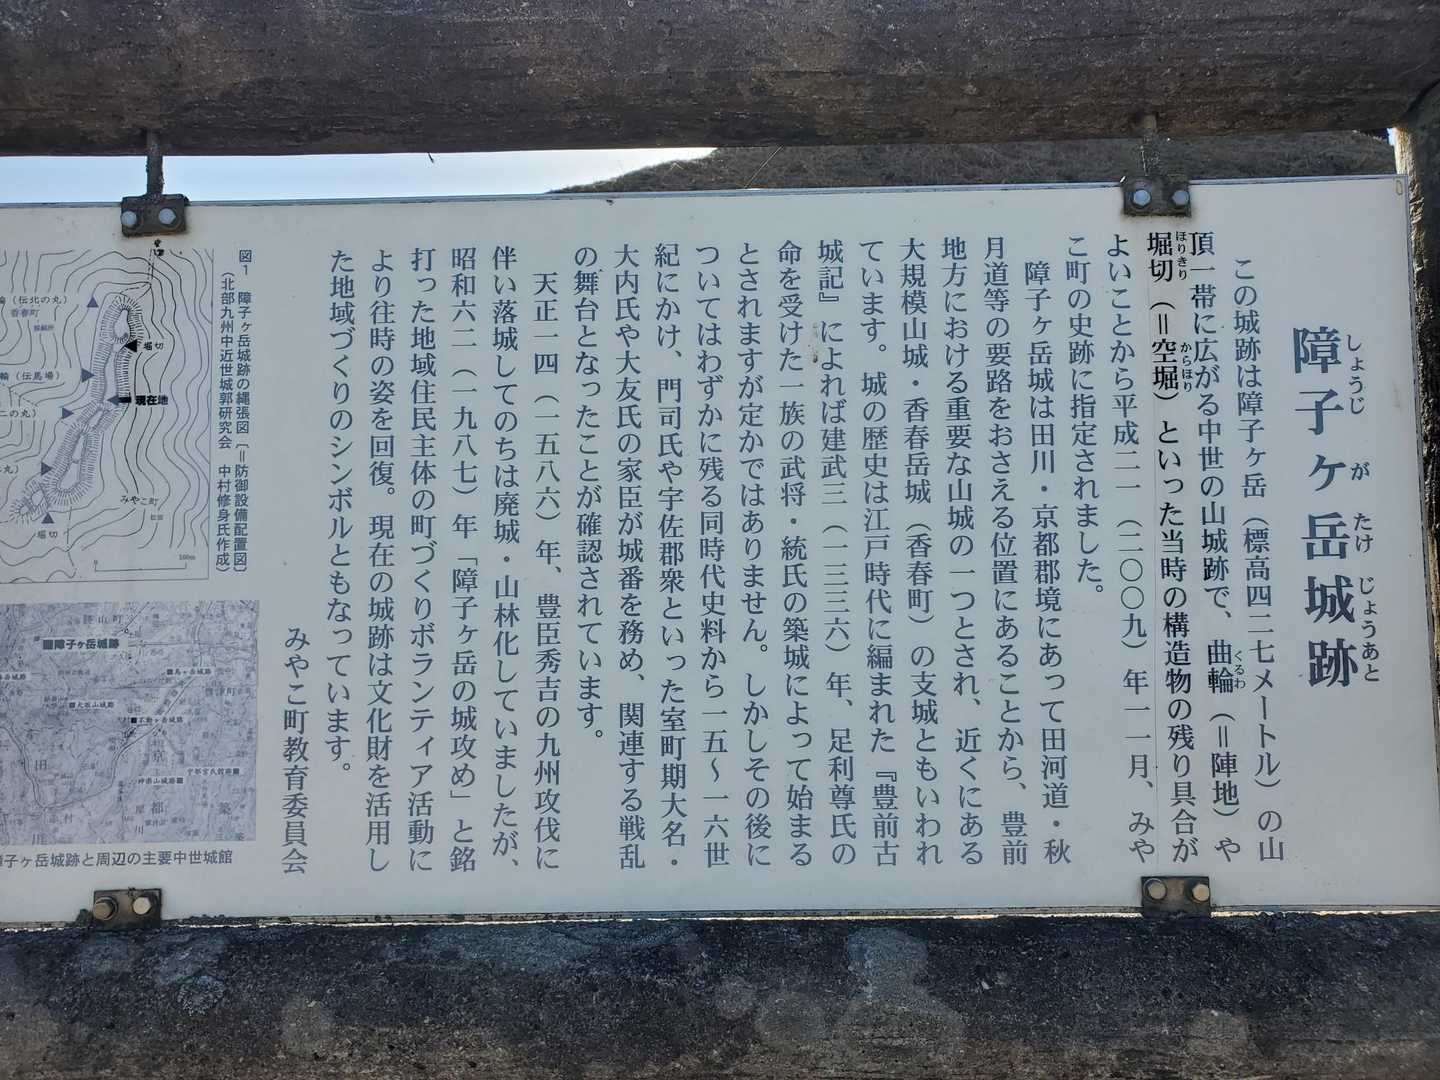 障子ヶ岳城跡
しょうじ が たけ じょうあと
この城跡は障子ヶ岳（標高四二七メートル）の山
頂一帯に広がる中世の山城跡で、曲輪（＝陣地）や
くるわ
堀切（＝空堀）といった当時の構造物の残り具合が
ほりきり からほり
よいことから平成二一（二〇〇九）年一一月、みや
こ町の史跡に指定されました。
障子ヶ岳城は田川・京都郡境にあって田河道・秋
月道等の要路をおさえる位置にあることから、豊前
地方における重要な山城の一つとされ、近くにある
大規模山城・香春岳城（香春町）の支城ともいわれ
ています。城の歴史は江戸時代に編まれた『豊前古
城記』によれば建武三（一三三六）年、足利尊氏の
命を受けた一族の武将・統氏の築城によって始まる
とされますが定かではありません。しかしその後に
ついてはわずかに残る同時代史料から一五～一六世
紀にかけ、門司氏や宇佐郡衆といった室町期大名・
大内氏や大友氏の家臣が城番を務め、関連する戦乱
の舞台となったことが確認されています。
天正一四（一五八六）年、豊臣秀吉の九州攻伐に
伴い落城してのちは廃城・山林化していましたが、
昭和六二（一九八七）年「障子ヶ岳の城攻め」と銘
打った地域住民主体の町づくりボランティア活動に
より往時の姿を回復。現在の城跡は文化財を活用し
た地域づくりのシンボルともなっています。
みやこ町教育委員会
図1 障子ヶ岳城跡の縄張図〔＝防御設備配置図〕
（北部九州中近世城郭研究会 中村修身氏作成）
（伝北の丸）
香春町
堀切
（伝馬場）
現在地
二の丸）
みやこ町
堀切
100m
勝山町
障子ヶ岳城跡
馬ヶ岳城跡
大坂山城跡
不動ヶ岳城跡
神楽山城跡
田
川
京
都
築
子ヶ岳城跡と周辺の主要中世城館